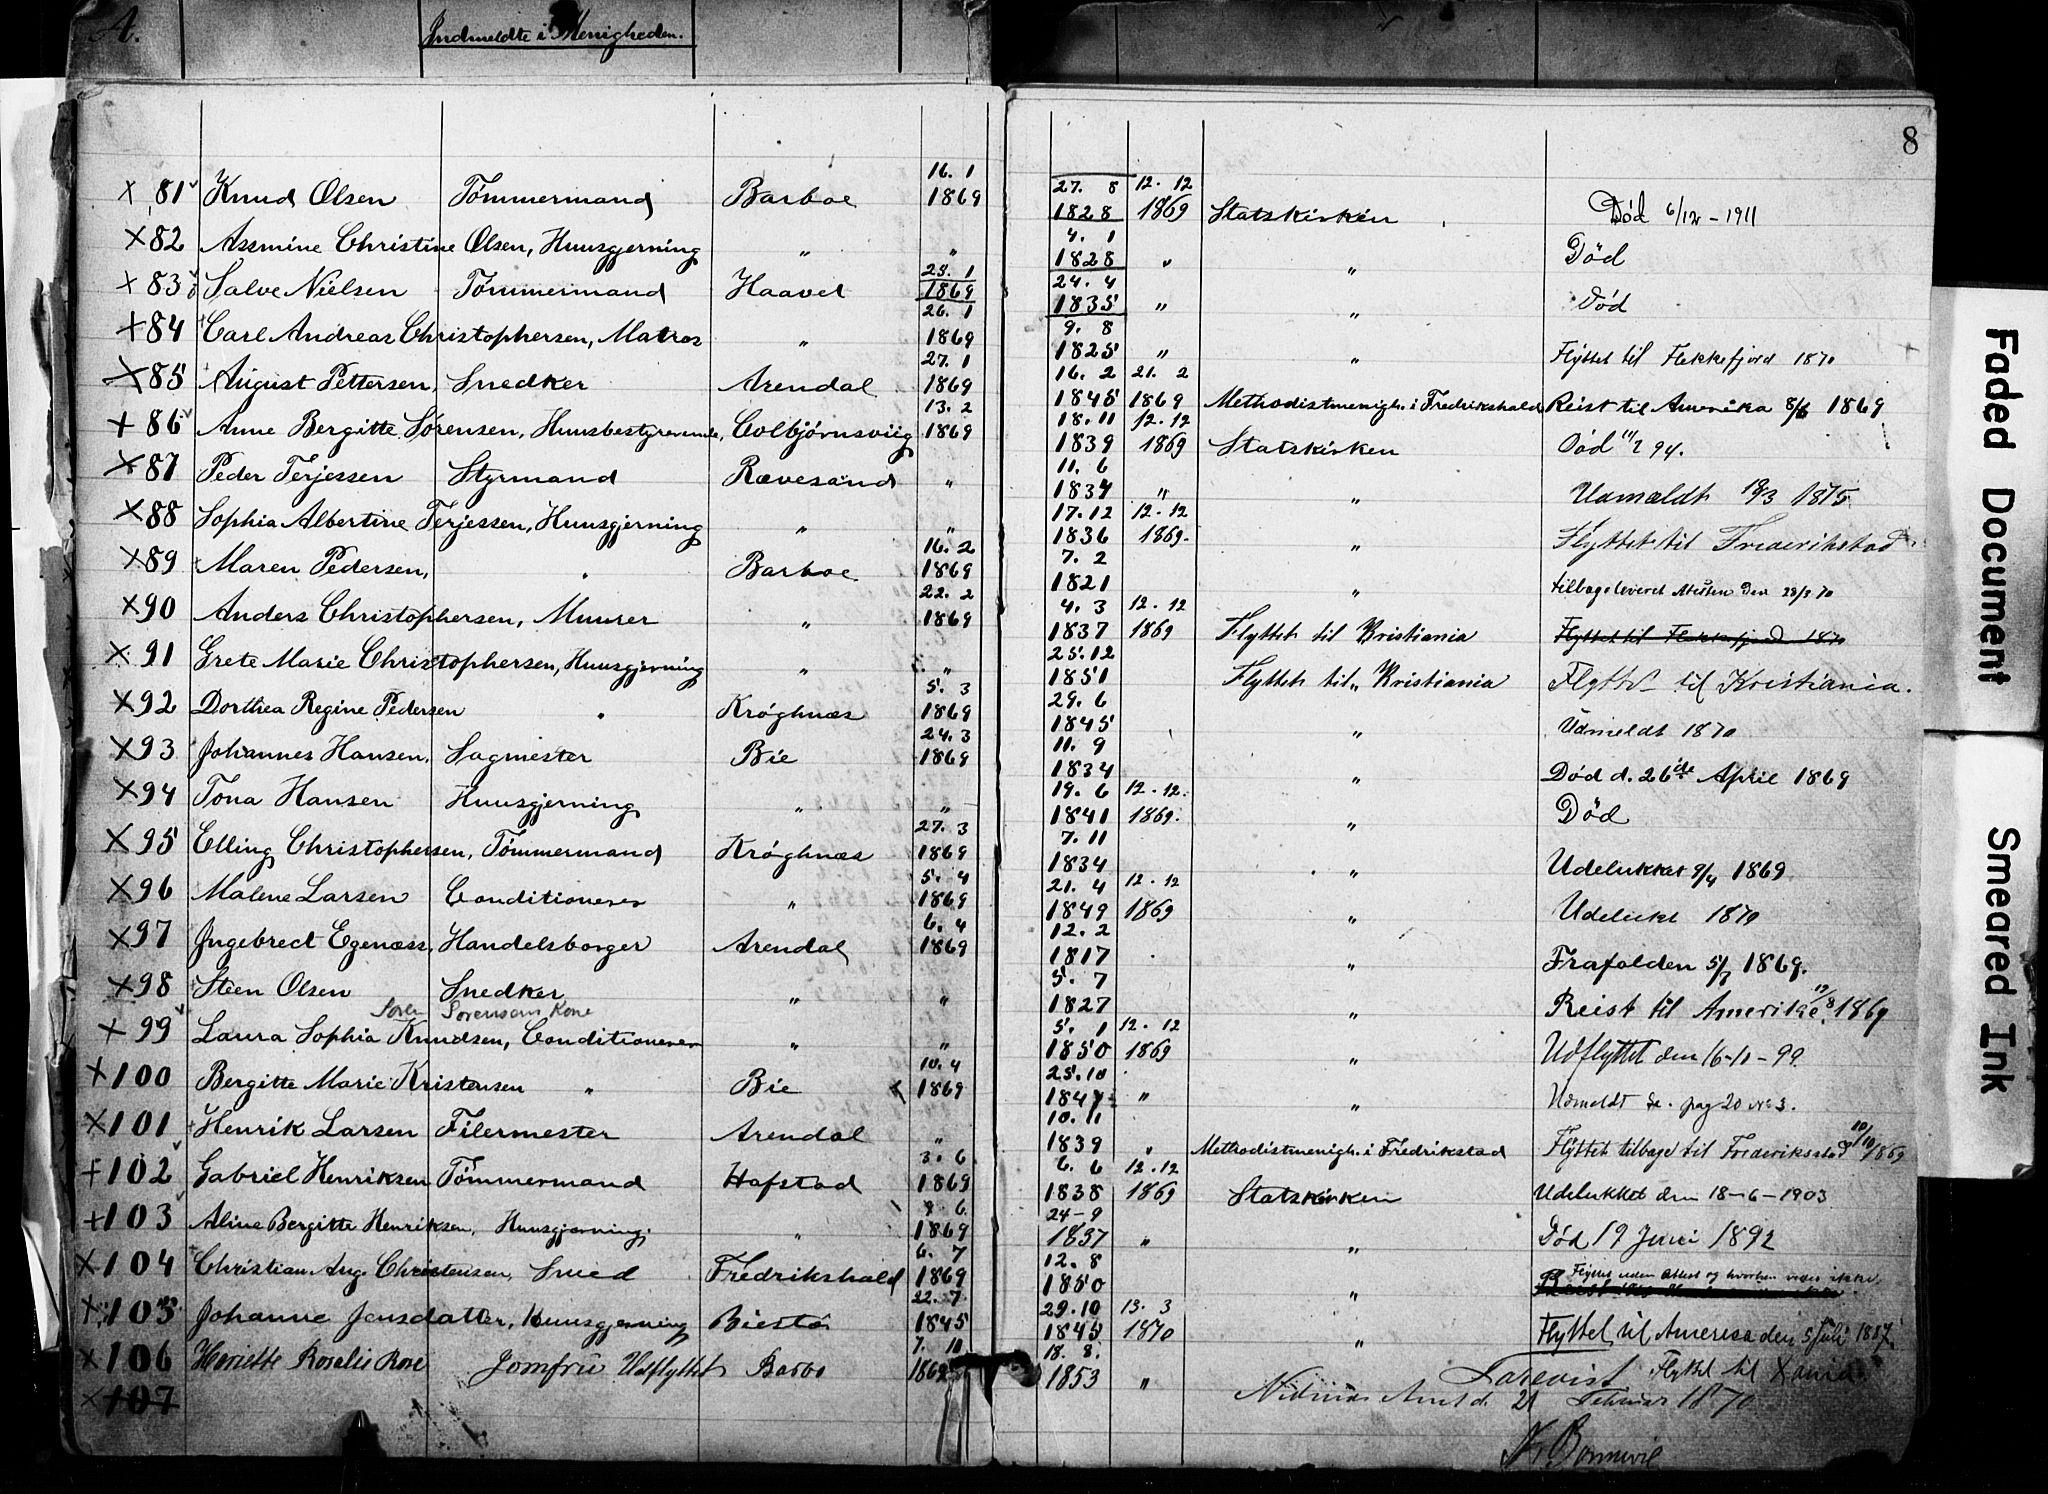 A.
Indmeldte i Menigheden.
8
X 81 Knud Olsen Tømmermand Barboe 16. 1 1869 27. 8 1828 12. 12 1869 Statskirken Død 6/12 - 1911
X 82 Assmine Christine Olsen, Huusgjerning " " 4. 1 1828 " " Død
X 83 Salve Nielsen Tømmermand Haavet 23. 1 1869 24. 4 1835 " " Død
X 84 Carl Andreas Christophersen, Matros " 26. 1 1869 9. 8 1825 " " Flyttet til Flekkefjord 1870
X 85 August Pettersen, Snedker Arendal 27. 1 1869 16. 2 1845 21. 2 1869 Methodistmenigh. i Fredrikshald Reist til Amerika 8/6 1869
X 86 Anne Bergitte Sørensen, Huusbestyrerinde, Colbjørnsviig 13. 2 1869 18. 11 1839 12. 12 1869 Statskirken Død 11/2 94.
X 87 Peder Terjessen Styrmand Rævesand " 11. 6 1834 " " Udmældt 18/3 1875
X 88 Sophia Albertine Terjessen, Huusgjerning " " 17. 12 1836 12. 12 1869. " Flyttet til Frederikstad
X 89 Maren Pedersen, " Barboe 16. 2 1869 7. 2 1821 " tilbageleveret Attesten Den 28/2 70
X 90 Anders Christophersen, Muurer " 22. 2 1869 4. 3 1837 12. 12 1869 Flyttet til Kristiania Flyttet til Flekkefjord 1870
X 91 Grete Marie Christophersen, Huusgjerning " " 25. 12 1851 Flyttet til " Kristiania Flyttet til Kristiania.
X 92 Dorthea Regine Pedersen " Krøghnæs 5. 3 1869 29. 6 1845 " Udmeldt 1870
X 93 Johannes Hansen, Sagmester Bie 24. 3 1869 11. 9 1834 " Død d. 26de April 1869
X 94 Tona Hansen Huusgjerning " " 19. 6 1841 12. 12. 1869. " Død
X 95 Elling Christophersen, Tømmermand Krøghnæs 27. 3 1869 7. 11 1834 " Udelukket 9/4 1869.
X 96 Malene Larsen Conditionerer " 5. 4 1869 21. 4 1849 12. 12 1869 " Udelukt 1870
X 97 Ingebrect Egenæss, Handelsborger Arendal 6. 4 1869 12. 2 1817 " Frafalden 5/7 1869.
X 98 Steen Olsen Snedker " " 5. 7 1827 " Reist til Amerika 1869
Sorensens Kone
X 99 Laura Sophia Knudsen, Conditionerer " " 5. 1 1850 12. 12 1869 " Udflyttet den 16-11-99.
X 100 Bergitte Marie Kristensen " Bie 10. 4 1869 25. 10 1847 " " Udmeldt Se. pag 20 No 3.
X 101 Henrik Larsen Filermester Arendal " 10. 11 1839 " Methodistmenigh. i Fredrikstad Flyttet tilbage til Frederiksstad 10/10 1869
X 102 Gabriel Henriksen Tømmermand Hafstad 3. 6 1869 6. 6 1838 12. 12 1869 Statskirken Udelukket den 18-6-1903
X 103 Aline Bergitte Henriksen, Huusgjerning, " 6 1869 24-9 1837 " " Død 19 Juni 1892
X 104 Christian Aug. Christensen, Smed Fredrikshald 6. 7 1869 12. 8 1850 " Flyttet uden Attest og hvorhen vides ikke.
X 105 Johanne Jensdatter, Huusgjerning Biestø 22. 7. 1845 29. 10 1845 13. 3 1870 " Flyttet til America den 5 Juli 1887
X 106 Henriette Rosalie Rose Jomfru Udflyttet Barbo 7. 10 1869 18. 8. 1853 " Flyttet til Xania
X 107
Nedenæs Amt d. 21 Februar 1870
Faded Document
Smeared Ink